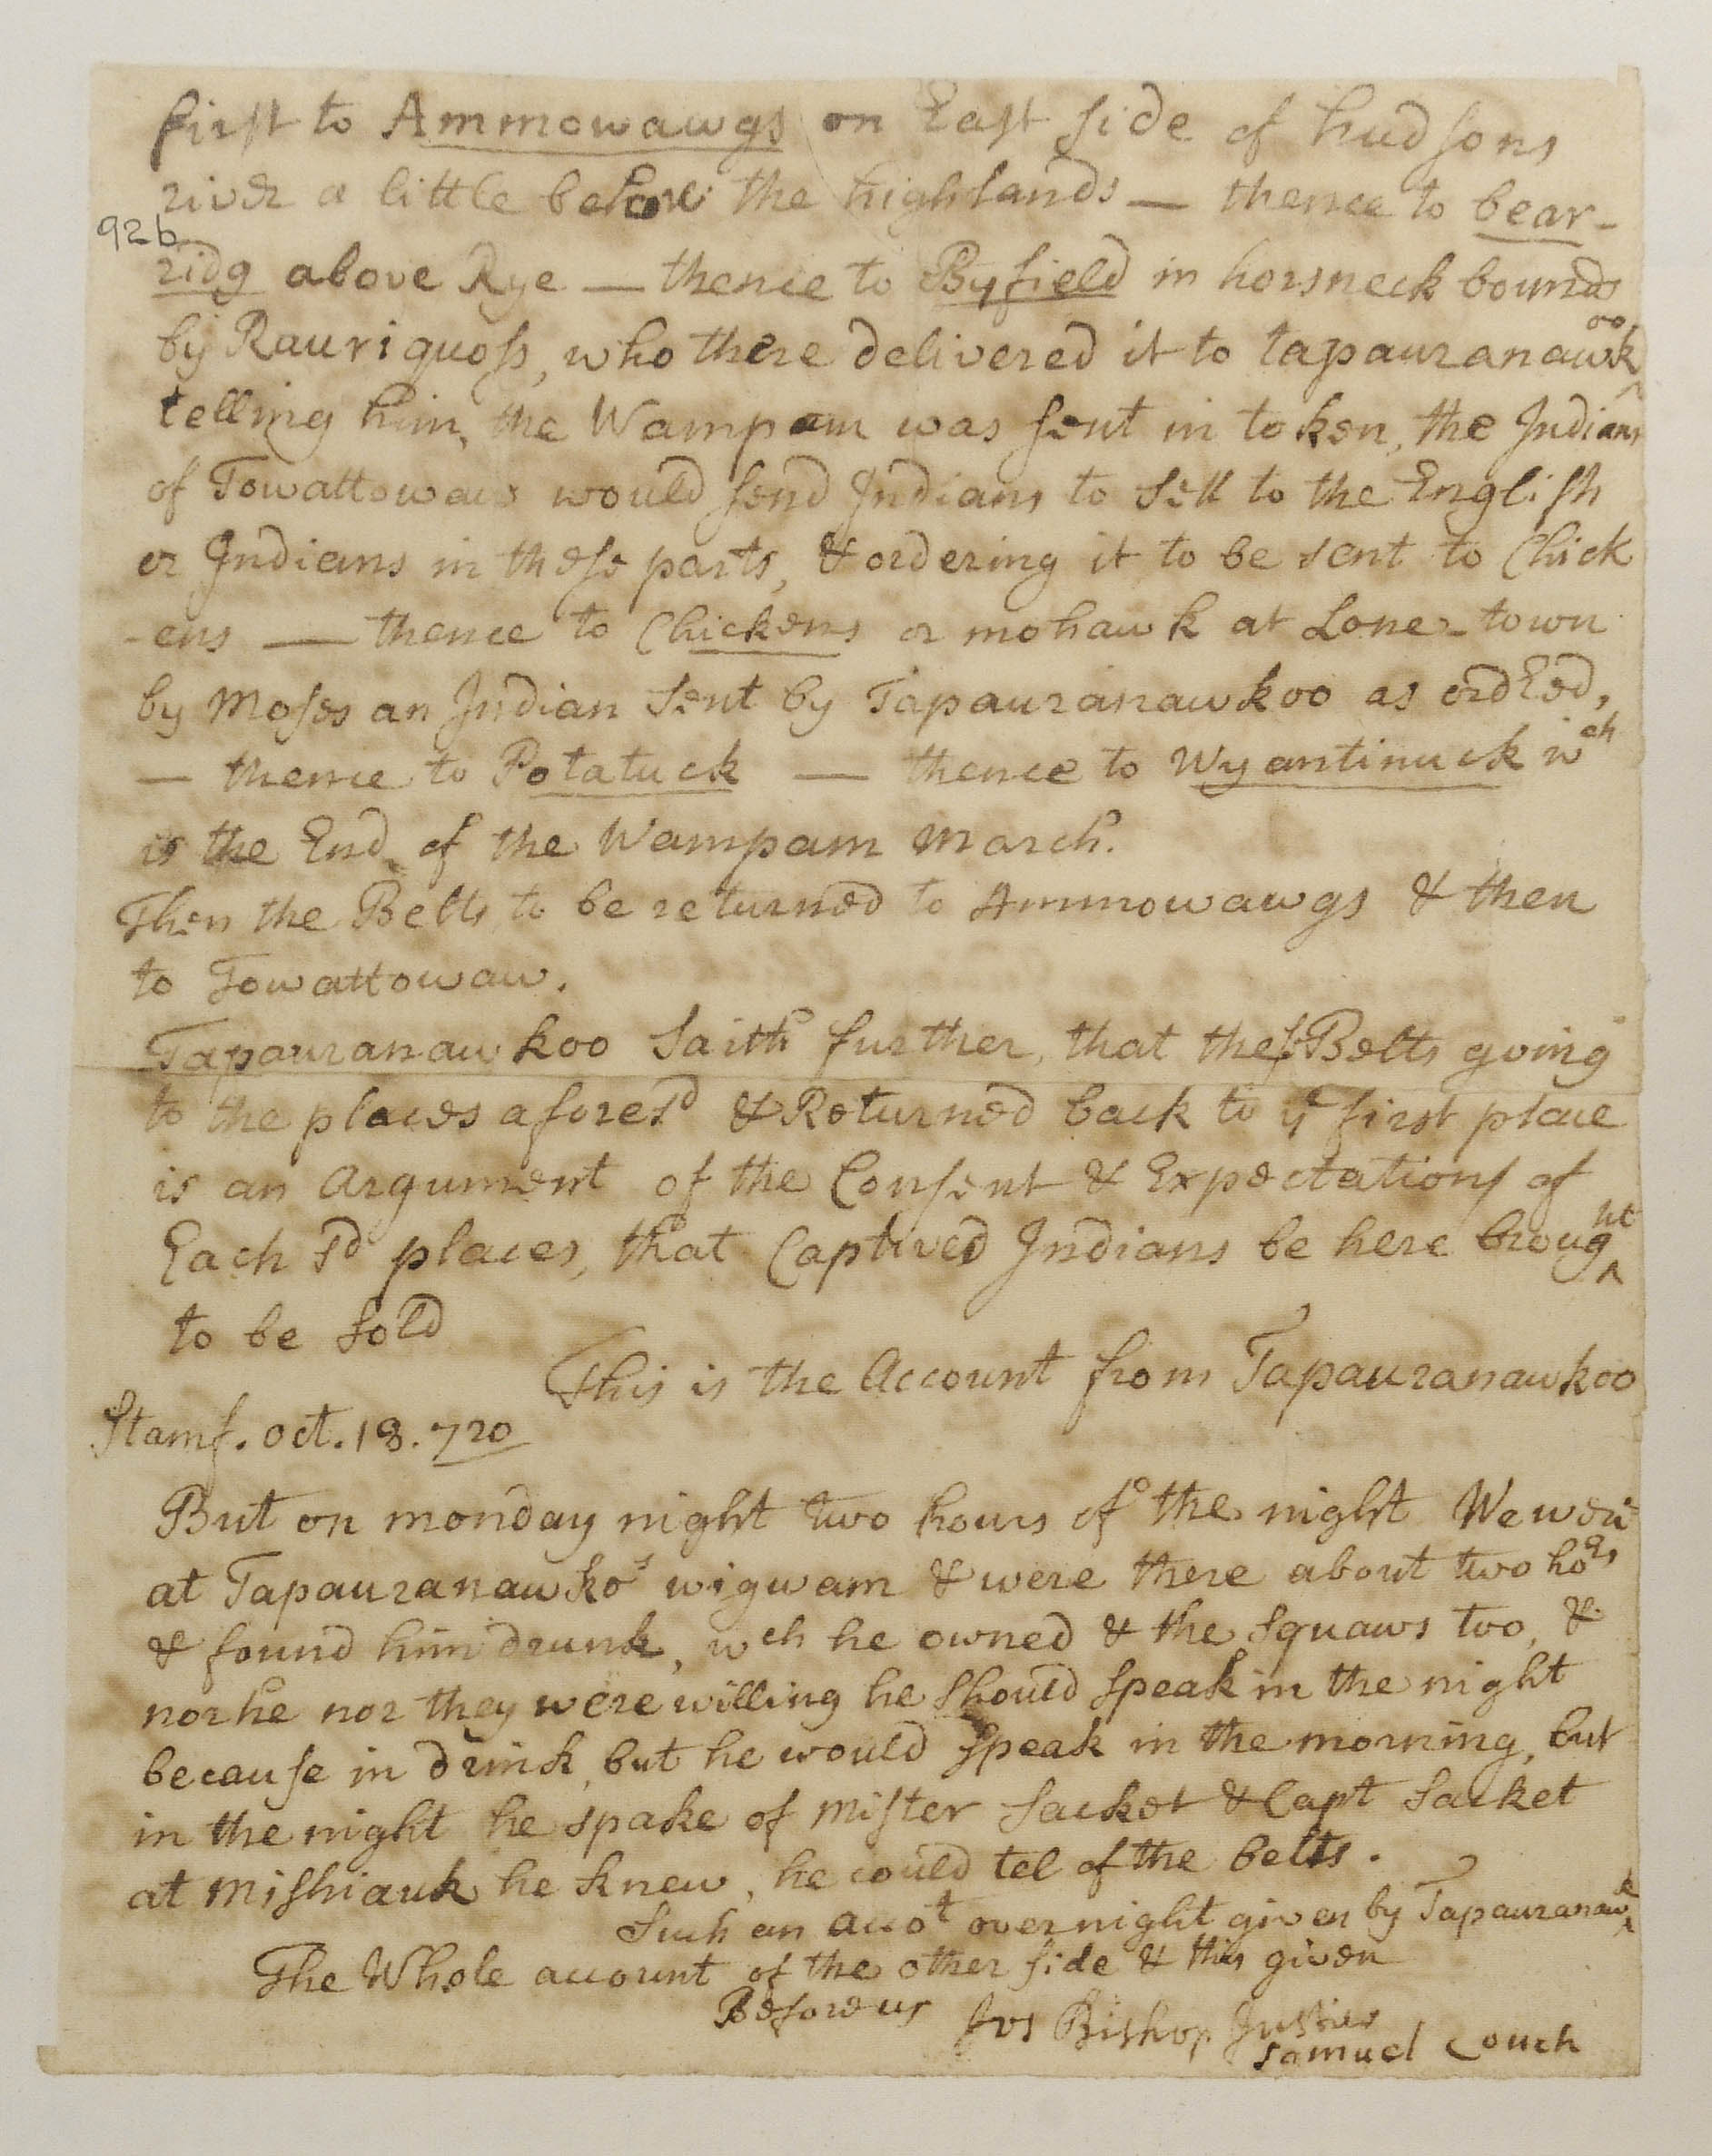 first to Ammowawgs on East side of hudsons
river a little below the highlands — thence to bear-
92b
ridg above Rye — thence to Byfield in horsneck bounds
by Rauriquoss, who there delivered it to tapauranawkoo
telling him, the Wampam was sent in token, the Indians
of Towattowaus would send Indians to sell to the English
or Indians in these parts, & ordering it to be sent to Chick
-ens — thence to Chickens or mohawk at Lone-town
by Moses an Indian sent by Tapauranawkoo as ordered,
— thence to Potatuck — thence to Wyantinuck wch
is the End of the Wampam march.
Then the Belts to be returned to Ammowawgs & then
to Towattowaw.
Tapauranawkoo saith further, that these Belts going
to the places aforesd & Returned back to ye first place
is an Argument of the Consent & Expectations of
Each sd places, that Captived Indians be here brought
to be sold
This is the Account from Tapauranawkoo
Stamf. oct. 18. 720
But on monday night two hours of the night We were
at Tapauranawkos wigwam & were there about two hors
& found him drunk, wch he owned & the squaws too, &
nor he nor they were willing he should speak in the night
because in drink, but he would speak in the morning, but
in the night he spake of Mister Sacket & Capt Sacket
at Mishiauk he knew, he could tel of the belts.
Such an accot over night given by Tapauranawk
The Whole account of the other side & this given
Before us Jos Bishop Justice
Samuel Couch